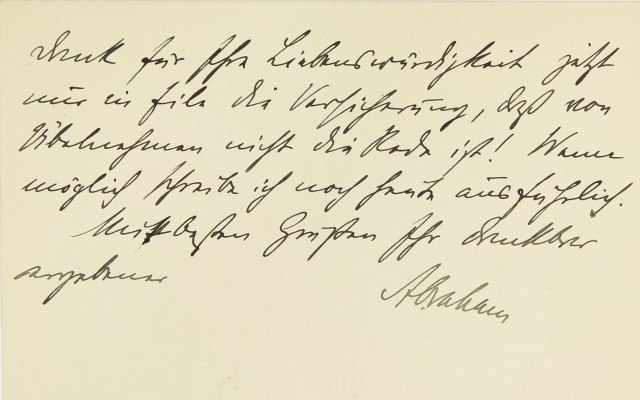 Dank für Ihre Liebenswürdigkeit jetzt
nur in Eile die Versicherung, daß von
Übelnehmen nicht die Rede ist! Wenn
möglich schreibe ich noch heute ausführlich.
Mit besten Grüßen Ihr dankbar
ergebener
Abraham